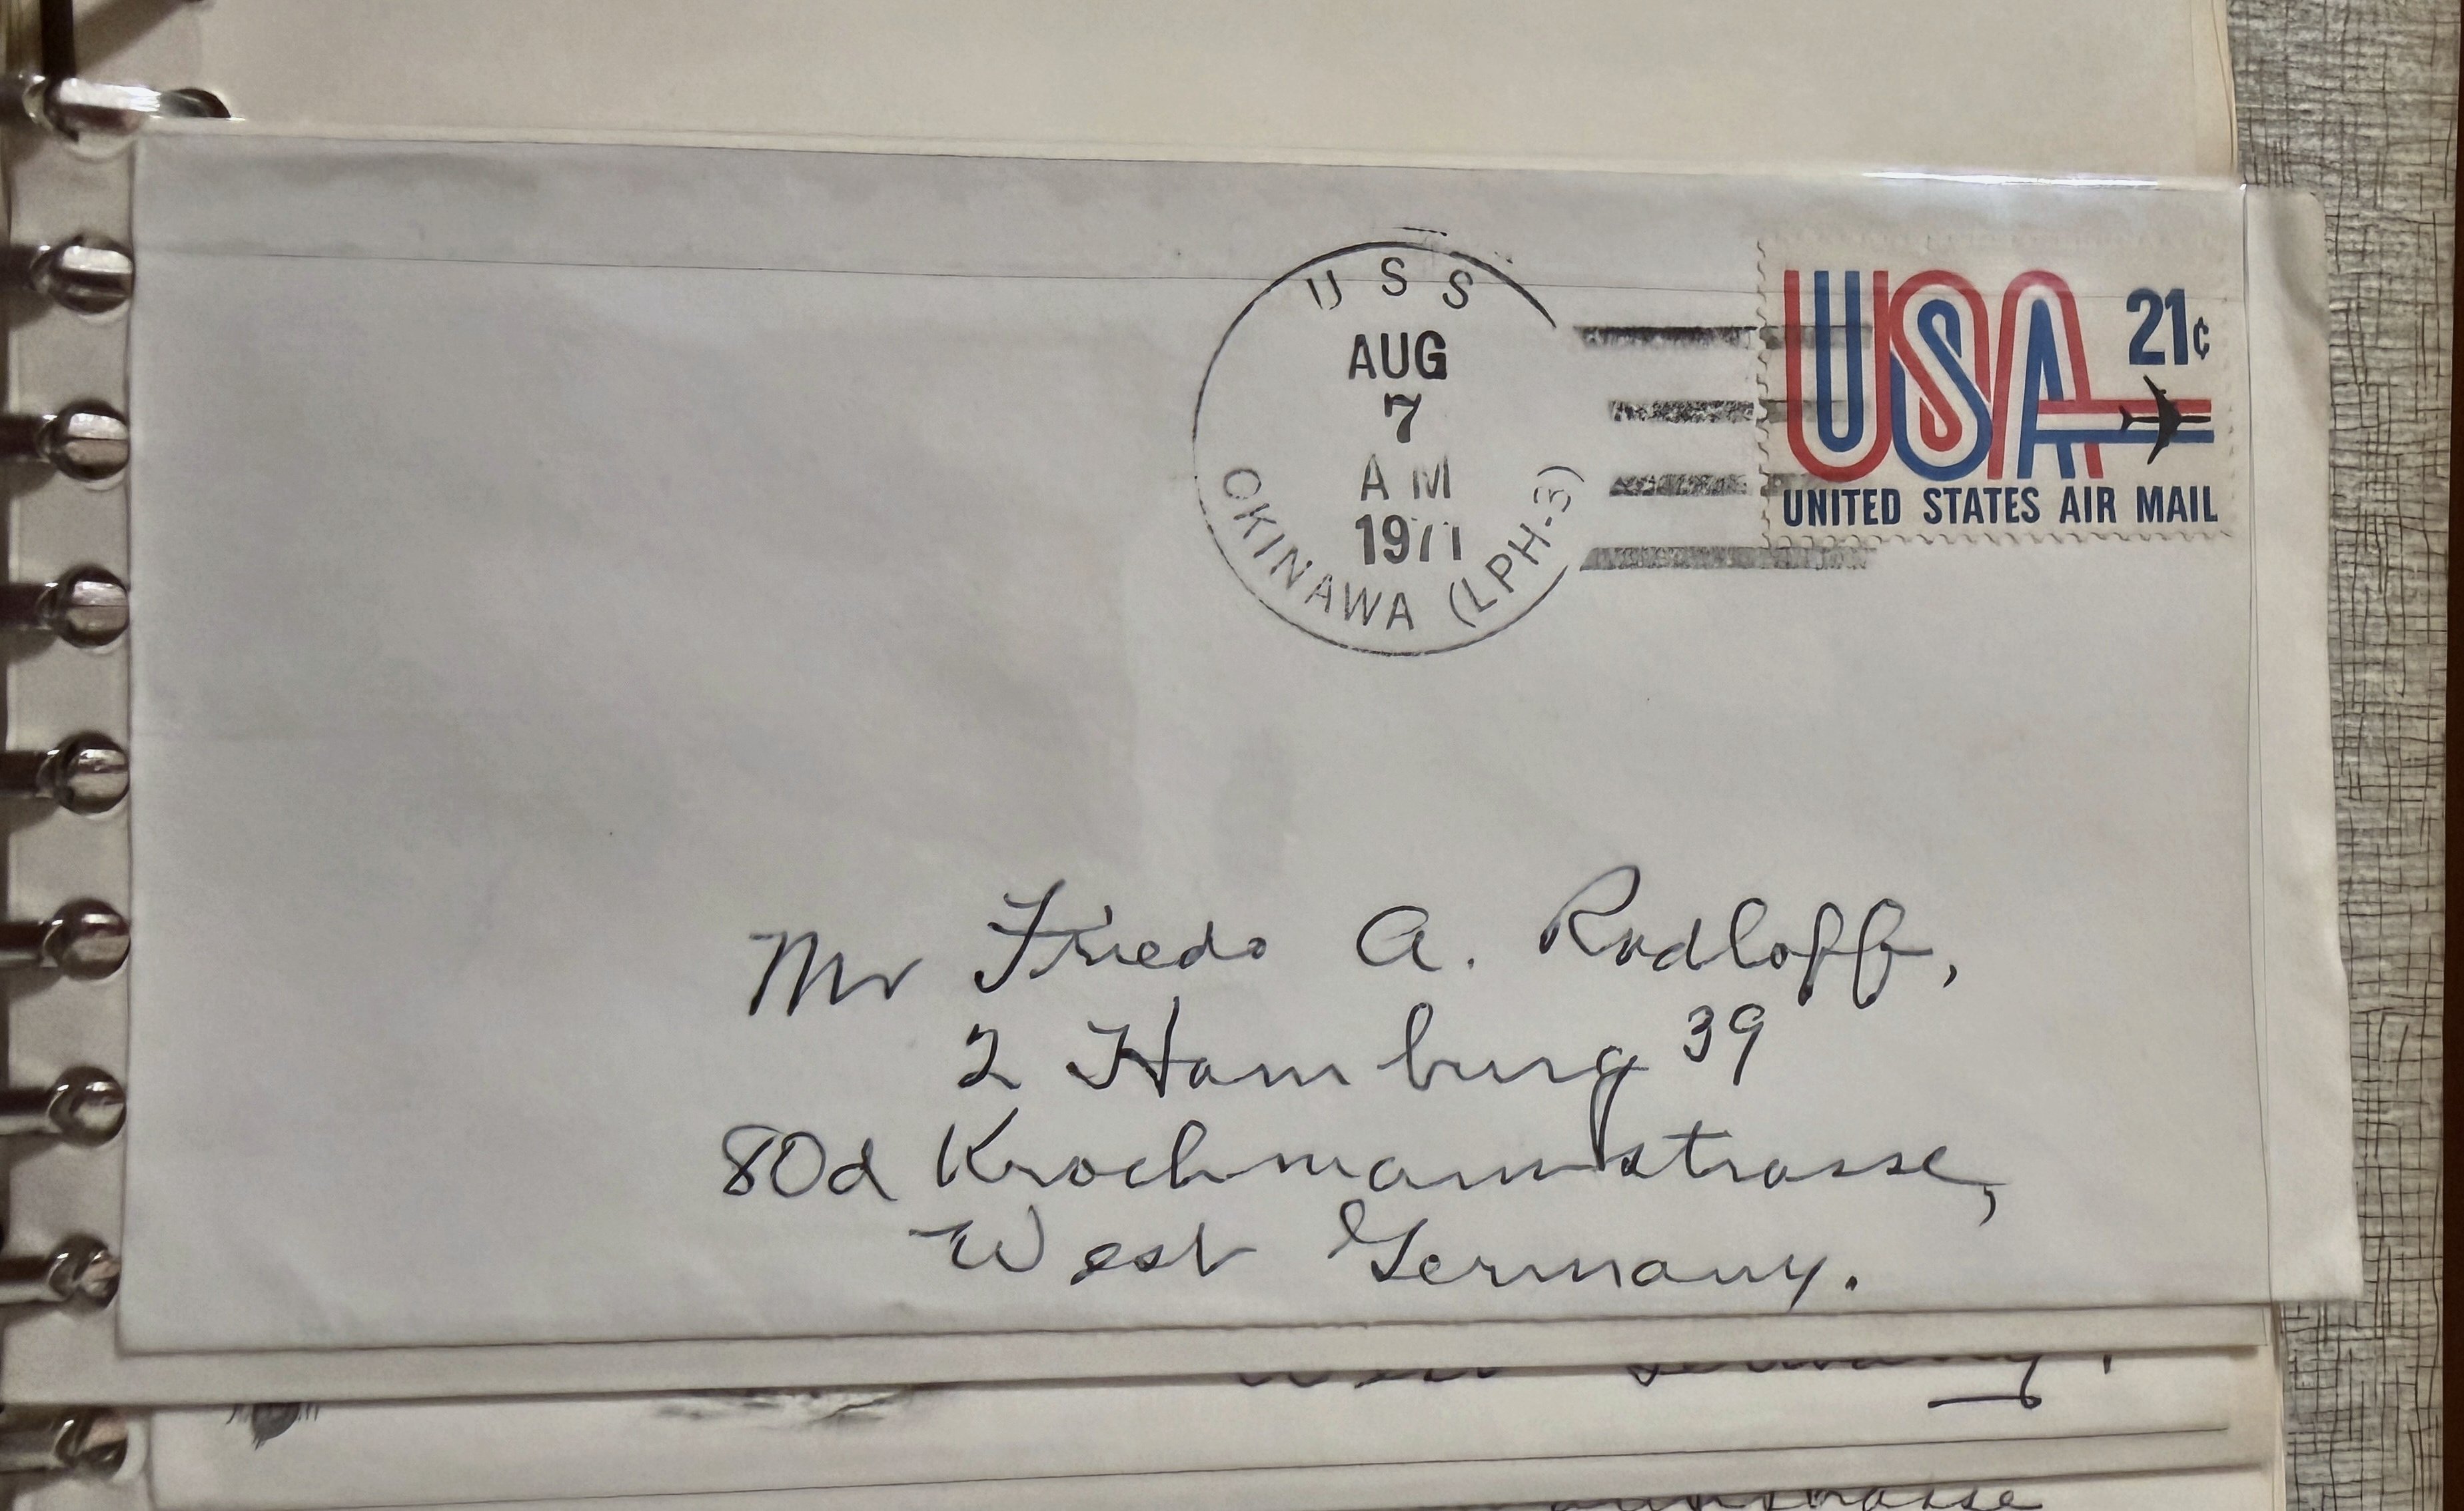 USS
AUG
7
AM
1971
OKINAWA (LPH-3)
USA 21¢
UNITED STATES AIR MAIL
Mr Friedo A. Radloff,
2 Hamburg 39
80d Krochmannstrasse,
West Germany.
West Germany.